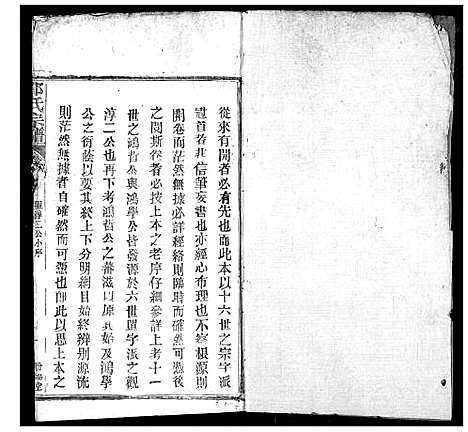 從來有開者必有先也而此本以十六世之宗字派
冠首若非信筆妄書也亦經心布理也不察根源則
開卷而茫然無據必詳經絡則臨時而確然可憑後
之閱斯卷者必按上本之老序仔細參詳上考十一
世之鴻哲公與鴻學公皆發源於六世單字派之觀
淳二公也再下考鴻哲公之蕃滋以原其始及鴻學
公之衍蔭以要其終上下分明綱目始終辨別源流
則茫然無據者自確然而可憑也卽此以思上本之
氏宗譜
二公小序